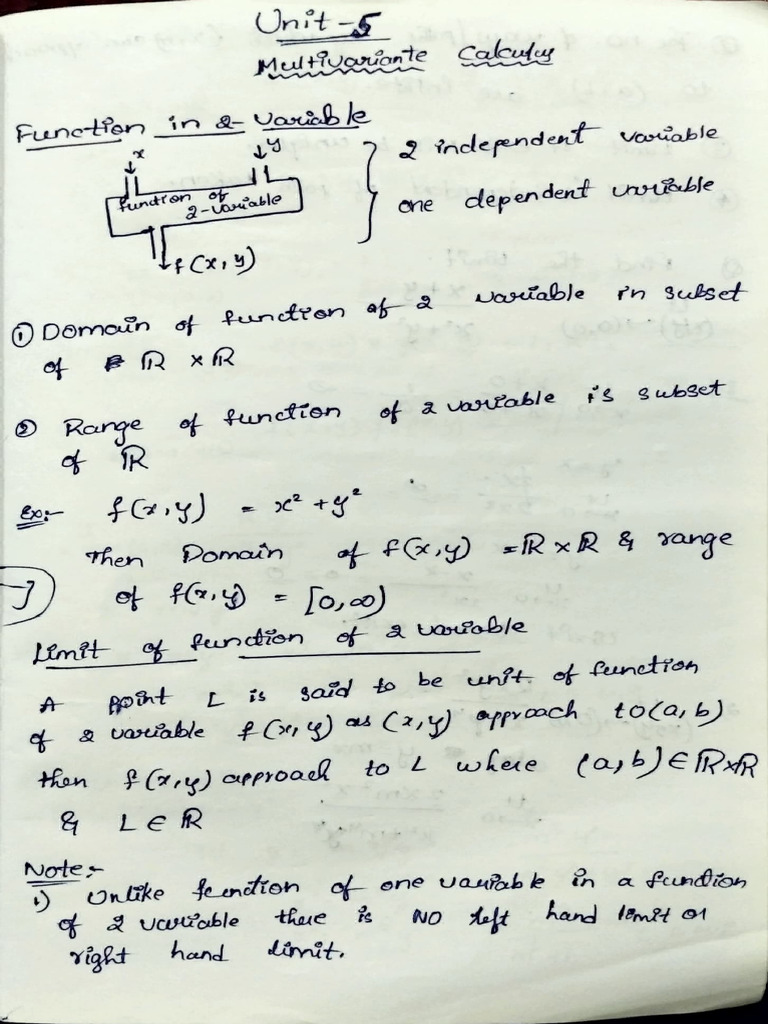 Unit - 5
Multivariante Calculus
Function in 2- variable
x
y
function of
2-variable
f(x, y)
2 independent variable
one dependent variable
① Domain of function of 2 variable in subset
of ℝ × ℝ
② Range of function of 2 variable is subset
of ℝ
Ex:- f(x, y) = x² + y²
Then Domain of f(x, y) = ℝ × ℝ & range
of f(x, y) = [0, ∞)
Limit of function of 2 variable
A point L is said to be unit of function
of 2 variable f(x, y) as (x, y) approach to (a, b)
then f(x, y) approach to L where (a, b) ∈ ℝ×ℝ
& L ∈ ℝ
Note:-
1) Unlike function of one variable in a function
of 2 variable there is NO left hand limit or
right hand limit.